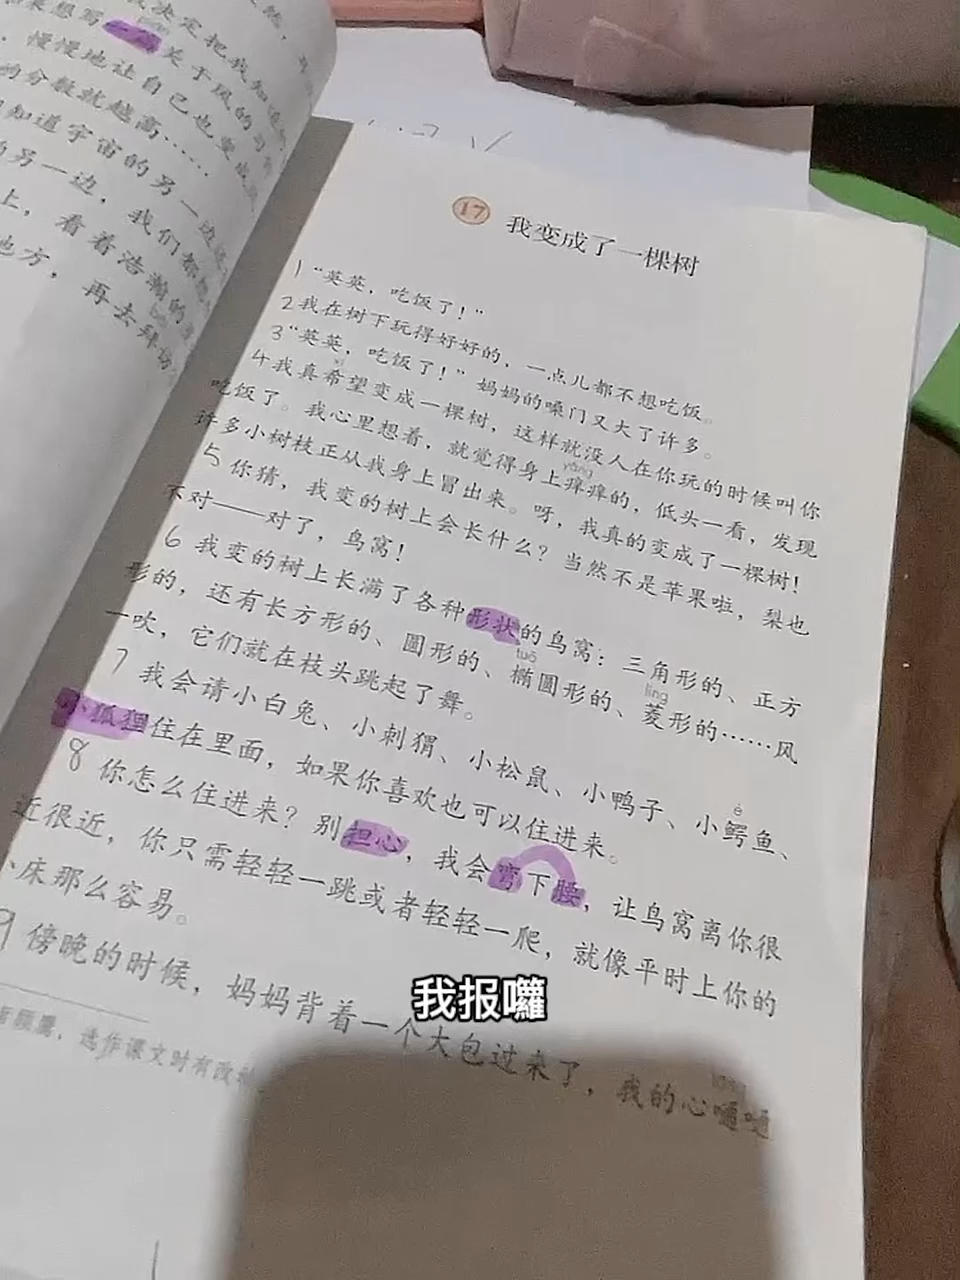 决定把我知道的
果想写一篇关于风的习
慢慢地让自己也变成
的分数就越高……
知道宇宙的另一边
的另一边，我们都
上，看着浩瀚的
地方，再去拜访
17 我变成了一棵树
1 “英英，吃饭了！”
2 我在树下玩得好好的，一点儿都不想吃饭。
3 “英英，吃饭了！”妈妈的嗓门又大了许多。
xī
4 我真希望变成一棵树，这样就没人在你玩的时候叫你
yǎng
吃饭了。我心里想着，就觉得身上痒痒的，低头一看，发现
许多小树枝正从我身上冒出来。呀，我真的变成了一棵树！
5 你猜，我变的树上会长什么？当然不是苹果啦，梨也
不对——对了，鸟窝！
6 我变的树上长满了各种形状的鸟窝：三角形的、正方
tuǒ líng
形的，还有长方形的、圆形的、椭圆形的、菱形的……风
一吹，它们就在枝头跳起了舞。
è
7 我会请小白兔、小刺猬、小松鼠、小鸭子、小鳄鱼、
小狐狸住在里面，如果你喜欢也可以住进来。
8 你怎么住进来？别担心，我会弯下腰，让鸟窝离你很
近很近，你只需轻轻一跳或者轻轻一爬，就像平时上你的
小床那么容易。
9 傍晚的时候，妈妈背着一个大包过来了，我的心嗵嗵
我报囉
选作课文时有改